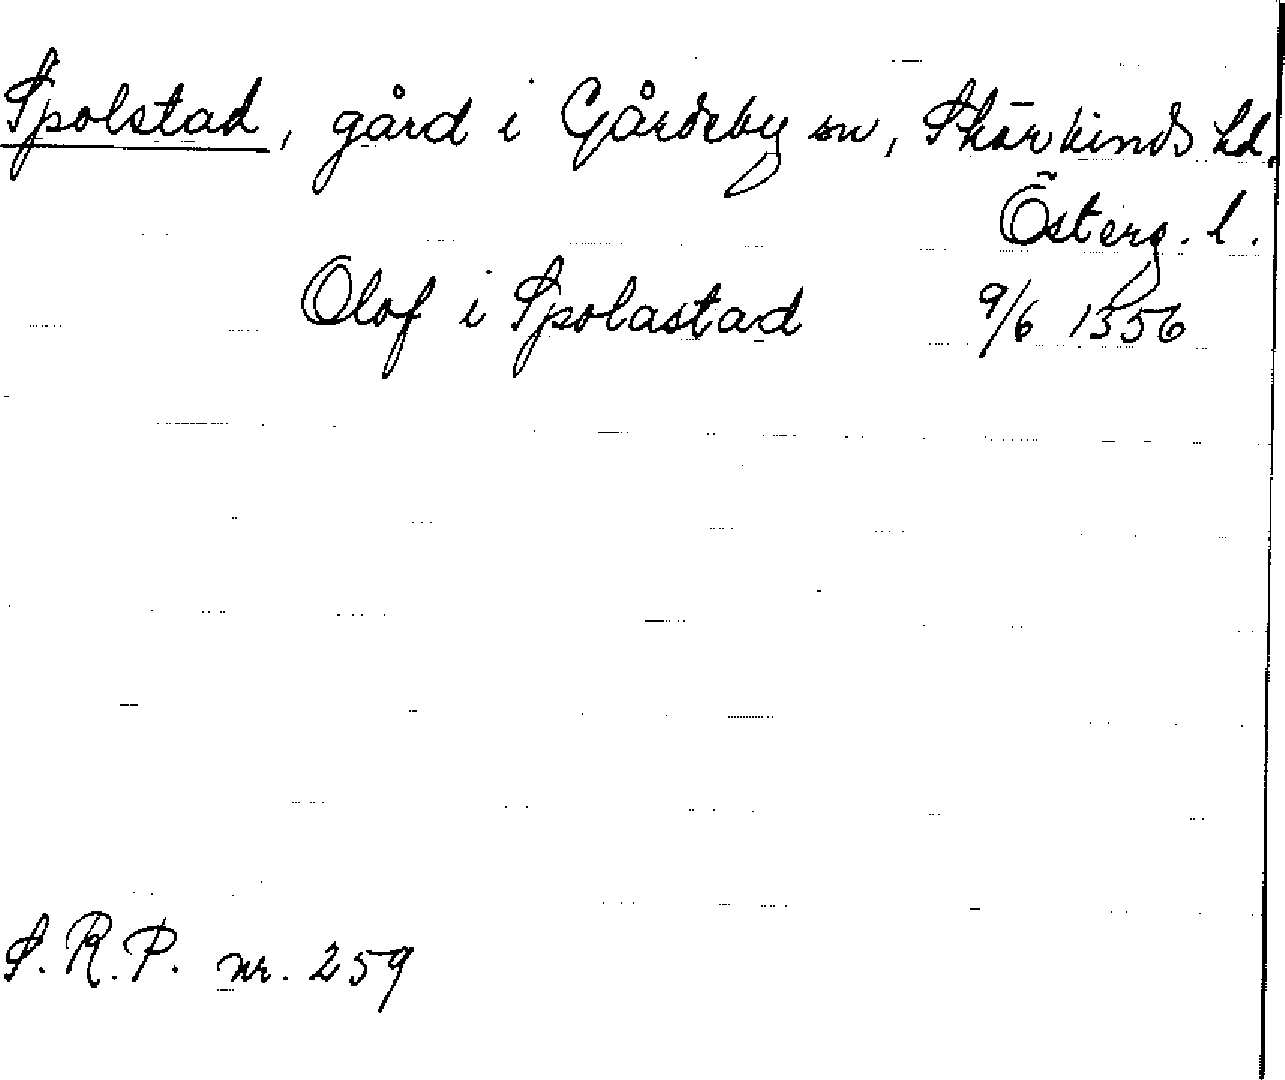 Spolstad, gård i Gårdeby sn, Skärkinds hd.
Österg. l.
Olof i Spolastad 9/6 1356
S.R.P. nr. 259